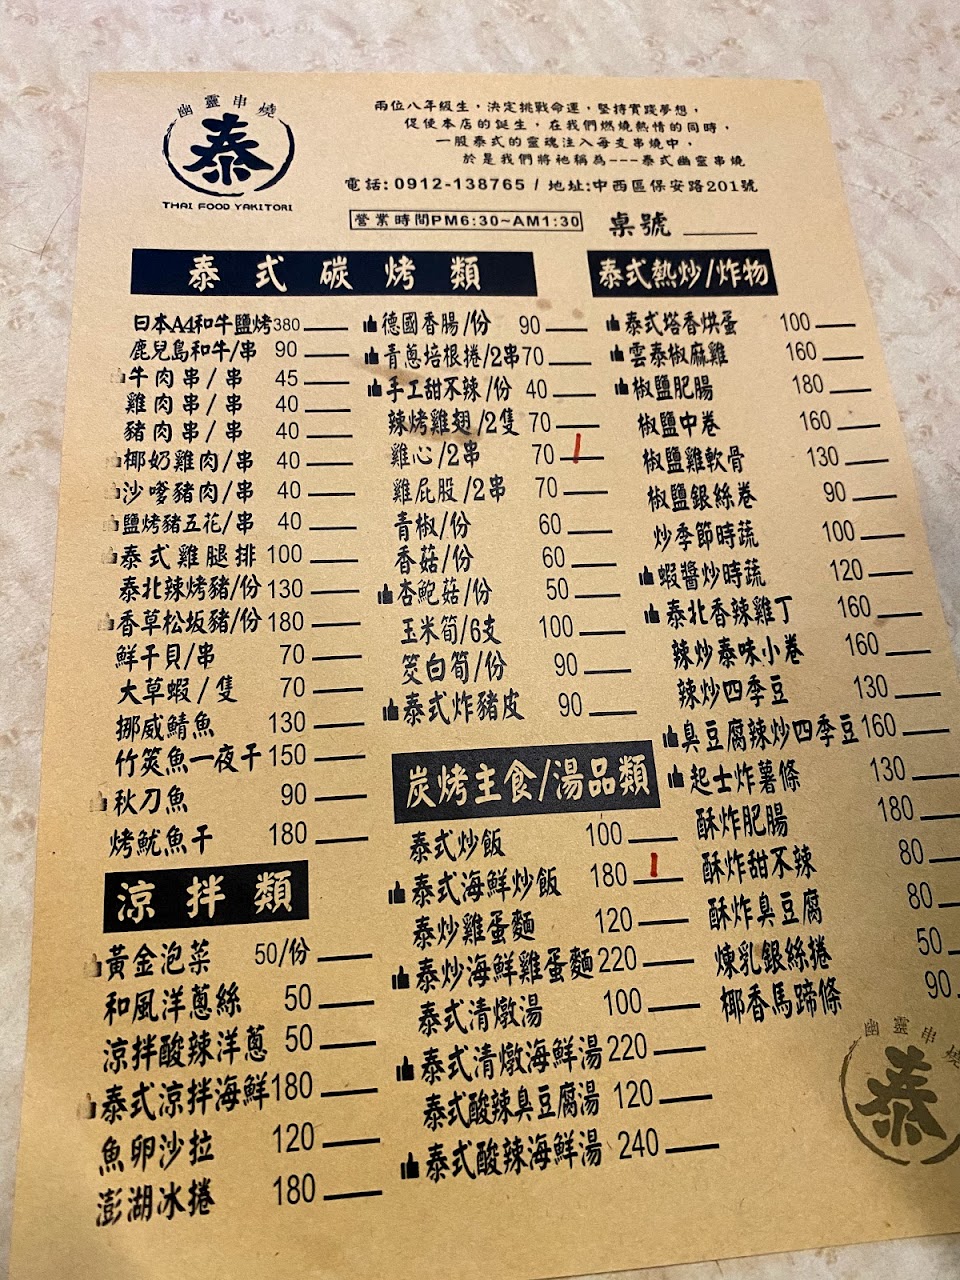 幽靈串燒
泰
THAI FOOD YAKITORI
兩位八年級生，決定挑戰命運，堅持實踐夢想，
促使本店的誕生，在我們燃燒熱情的同時，
一股泰式的靈魂注入每支串燒中，
於是我們將祂稱為---泰式幽靈串燒
電話:0912-138765 / 地址:中西區保安路201號
營業時間PM6:30~AM1:30
桌號
泰式碳烤類
日本A4和牛鹽烤380
鹿兒島和牛/串 90
牛肉串/串 45
雞肉串/串 40
豬肉串/串 40
椰奶雞肉/串 40
沙嗲豬肉/串 40
鹽烤豬五花/串 40
泰式雞腿排 100
泰北辣烤豬/份 130
香草松坂豬/份 180
鮮干貝/串 70
大草蝦/隻 70
挪威鯖魚 130
竹筴魚一夜干 150
秋刀魚 90
烤魷魚干 180
德國香腸/份 90
青蔥培根捲/2串 70
手工甜不辣/份 40
辣烤雞翅/2隻 70
雞心/2串 70
雞屁股/2串 70
青椒/份 60
香菇/份 60
杏鮑菇/份 50
玉米筍/6支 100
筊白筍/份 90
泰式炸豬皮 90
涼拌類
黃金泡菜 50/份
和風洋蔥絲 50
涼拌酸辣洋蔥 50
泰式涼拌海鮮 180
魚卵沙拉 120
澎湖冰捲 180
炭烤主食/湯品類
泰式炒飯 100
泰式海鮮炒飯 180
泰炒雞蛋麵 120
泰炒海鮮雞蛋麵 220
泰式清燉湯 100
泰式清燉海鮮湯 220
泰式酸辣臭豆腐湯 120
泰式酸辣海鮮湯 240
泰式熱炒/炸物
泰式塔香烘蛋 100
雲泰椒麻雞 160
椒鹽肥腸 180
椒鹽中卷 160
椒鹽雞軟骨 130
椒鹽銀絲卷 90
炒季節時蔬 100
蝦醬炒時蔬 120
泰北香辣雞丁 160
辣炒泰味小卷 160
辣炒四季豆 130
臭豆腐辣炒四季豆 160
起士炸薯條 130
酥炸肥腸 180
酥炸甜不辣 80
酥炸臭豆腐 80
煉乳銀絲捲 50
椰香馬蹄條 90
幽靈串燒
泰